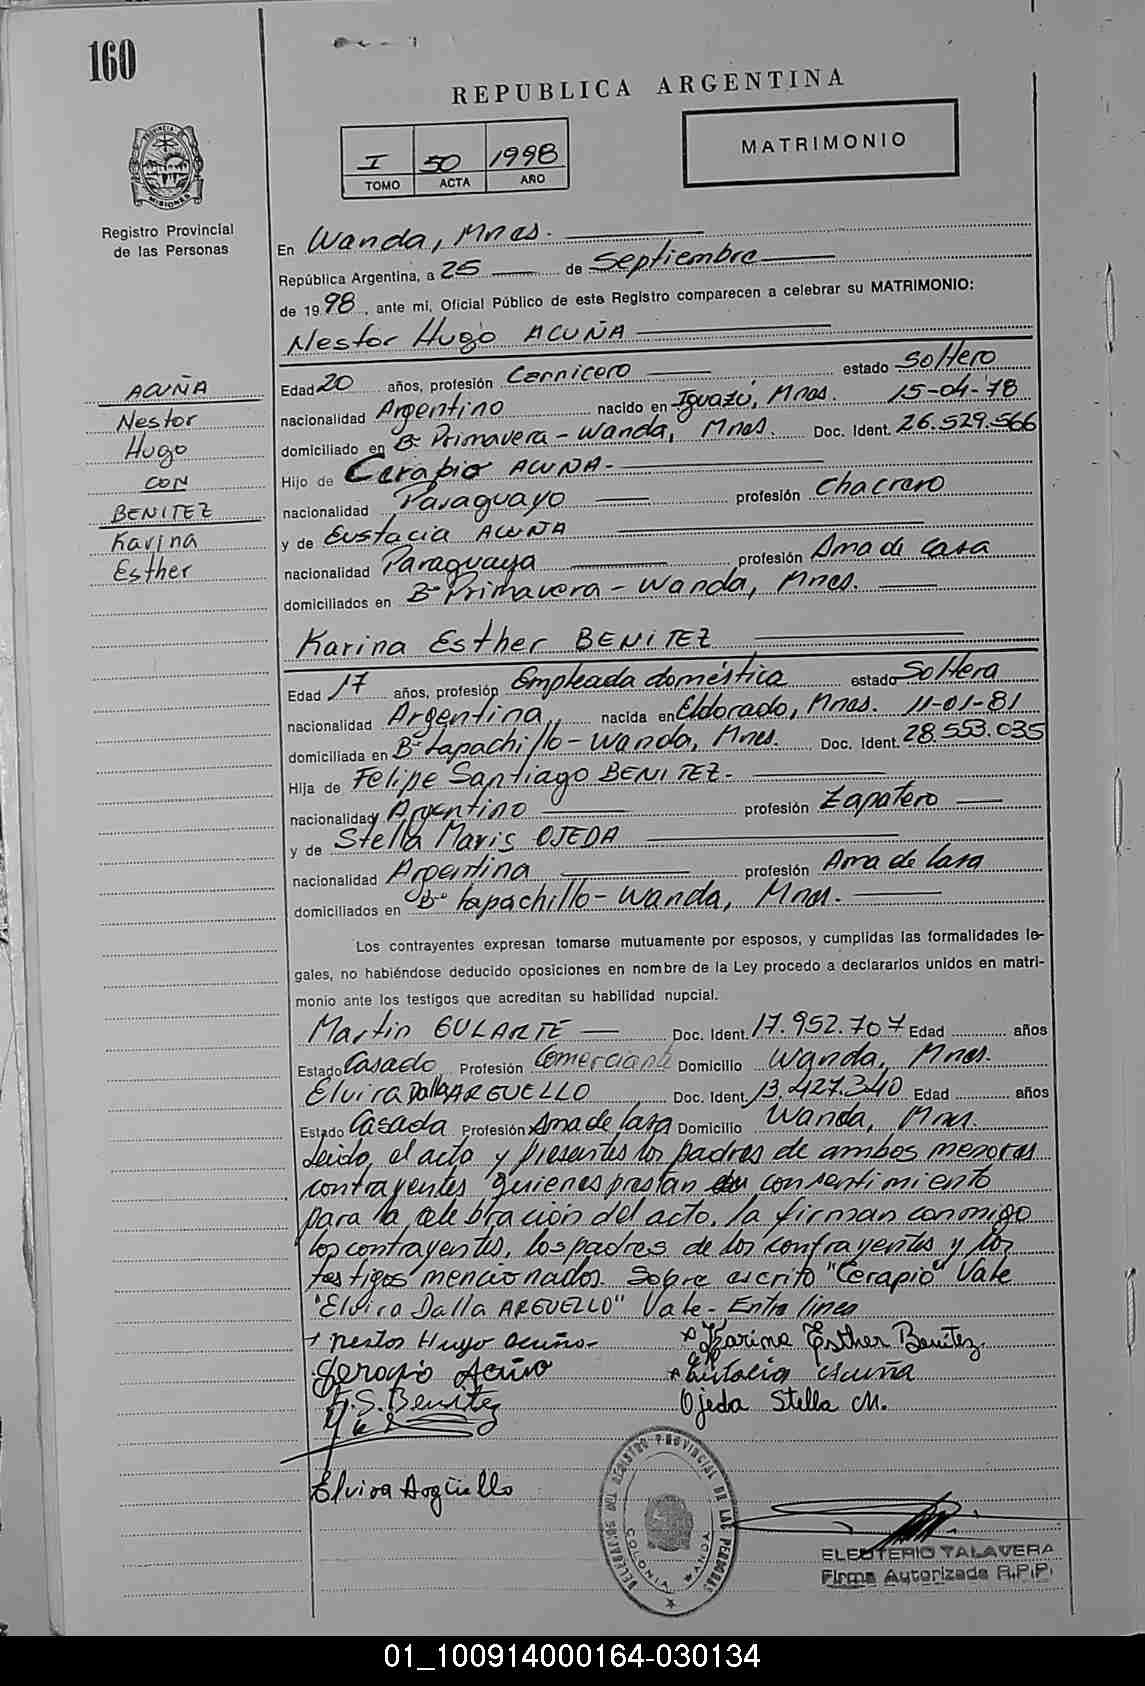 160
REPUBLICA ARGENTINA
MATRIMONIO
I 50 1998
TOMO ACTA AÑO
PROVINCIA DE MISIONES
Registro Provincial
de las Personas
ACUÑA
Nestor
Hugo
CON
BENITEZ
Karina
Esther
En Wanda, Mnes.
República Argentina, a 25 de Septiembre
de 1998, ante mi, Oficial Público de este Registro comparecen a celebrar su MATRIMONIO:
Nestor Hugo ACUÑA
Edad 20 años, profesión Carnicero estado Soltero
nacionalidad Argentino nacido en Iguazú, Mnes. 15-04-78
domiciliado en Bº Primavera - Wanda, Mnes. Doc. Ident. 26.529.566
Hijo de Cerapio ACUÑA.-
nacionalidad Paraguayo profesión Chacrero
y de Eustacia ACUÑA
nacionalidad Paraguaya profesión Ama de Casa
domiciliados en Bº Primavera - Wanda, Mnes.
Karina Esther BENITEZ
Edad 17 años, profesión Empleada doméstica estado Soltera
nacionalidad Argentina, nacida en Eldorado, Mnes. 11-01-81
domiciliada en Bº Lapachillo - Wanda, Mnes. Doc. Ident. 28.553.035
Hija de Felipe Santiago BENITEZ.-
nacionalidad Argentino profesión Zapatero
y de Stella Maris OJEDA
nacionalidad Argentina profesión Ama de Casa
domiciliados en Bº Lapachillo - Wanda, Mnes.
Los contrayentes expresan tomarse mutuamente por esposos, y cumplidas las formalidades le-
gales, no habiéndose deducido oposiciones en nombre de la Ley procedo a declararlos unidos en matri-
monio ante los testigos que acreditan su habilidad nupcial.
Martin GULARTE Doc. Ident. 17.952.707 Edad años
Estado Casado Profesión Comerciante Domicilio Wanda, Mnes.
Elvira Dalla ARGUELLO Doc. Ident. 13.427.340 Edad años
Estado Casada Profesión Ama de Casa Domicilio Wanda, Mnes.
Leido, el acto y presentes los padres de ambos menores
contrayentes quienes prestan su consentimiento
para la celebración del acto, la firman conmigo
los contrayentes, los padres de los contrayentes y los
testigos mencionados. Sobre escrito "Cerapio" Vale
"Elvira Dalla ARGUELLO" Vale - Entre linea
x Nestor Hugo Acuña- x Karina Esther Benitez
Serapio Acuña x Eustacia Acuña
F.S. Benitez Ojeda Stella M.
Elvira Argüello
DELEGACION DEL REGISTRO PROVINCIAL DE LAS PERSONAS
COLONIA WANDA
ELEUTERIO TALAVERA
Firma Autorizada R.P.P.
01_100914000164-030134